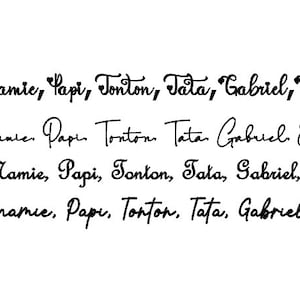 amie, Papi, Tonton, Tata, Gabriel,
amie. Papi. Tonton. Tata. Gabriel.
Mamie, Papi, Tonton, Tata, Gabriel,
mamie, Papi, Tonton, Tata, Gabriel